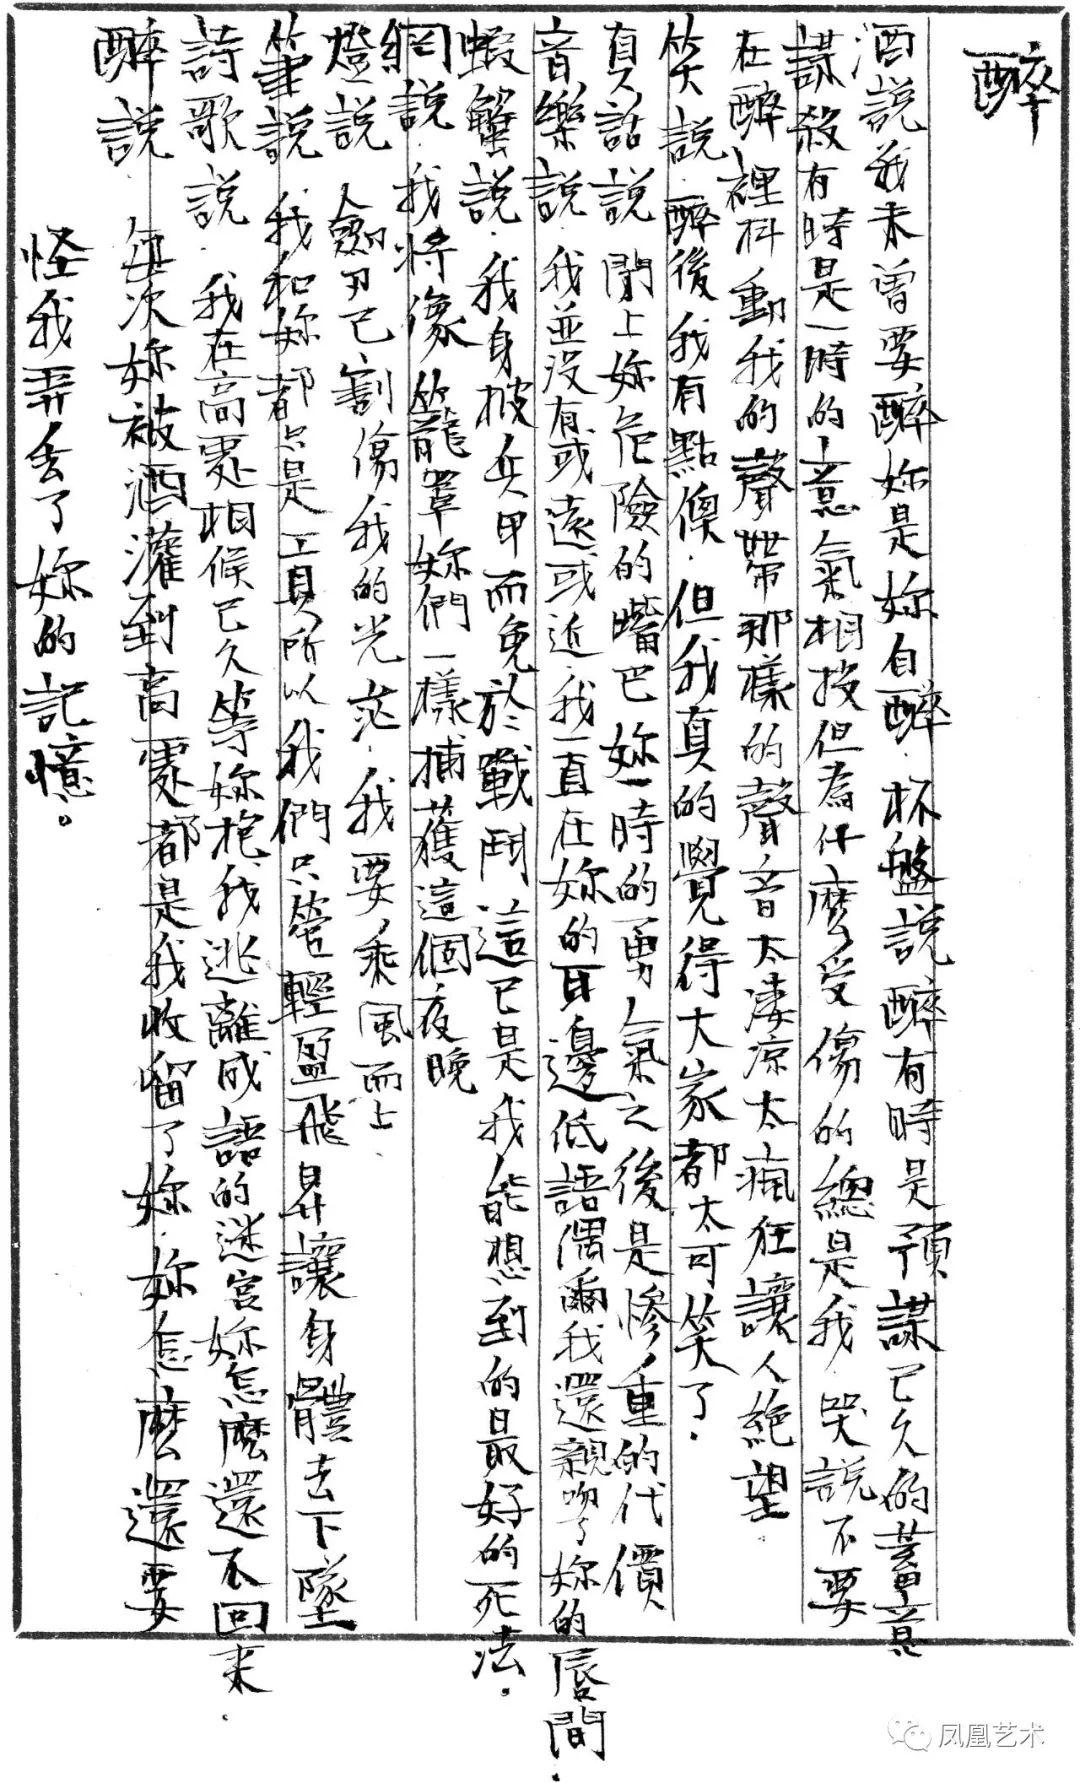 醉
酒說我未曾要醉妳是妳自醉．杯盤說醉有時是預謀已久的蓄意
謀殺有時是一時的意氣相投但為什麼受傷的總是我 哭說不要
在醉裡抖動我的聲帶那樣的聲音太淒涼太瘋狂讓人絕望．
笑說．醉後我有點傻．但我真的覺得大家都太可笑了．
真話說 閉上妳危險的嘴巴妳一時的勇氣之後是慘重的代價
音樂說．我並沒有或遠或近．我一直在妳的耳邊低語偶爾我還親吻了妳的唇間．
蝦蟹說．我身披兵甲而免於戰鬥這已是我能想到的最好的死法．
網說．我將像籠罩妳們一樣捕獲這個夜晚
燈說 人劍刃已割傷我的光茫．我要乘風而上
筆說 我和妳都只是工具所以我們只管輕盈飛昇讓身體去下墜
詩歌說．我在高處相候已久等妳抱我逃離成語的迷宮妳怎麼還不回來．
醉說．每次妳被酒灌到高處都是我收留了妳．妳怎麼還要
怪我弄丟了妳的記憶。
凤凰艺术